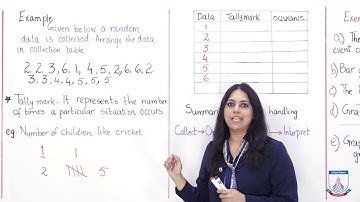 Example.
Given below a random
data is collected. Arrange the data
in collection table.
2, 2, 3, 6, 1, 4, 5, 2, 6, 6, 2
3, 3, 4, 4, 5, 5, 5
* Tally mark. It represents the number
of times a particular situation occurs
eg. Number of children like cricket
1 1
2 5
Data Tally mark
1
2
3
4
5
6
Summar handling
Collect → Interpret
Exer
a) The
event o
b) Bar
c) The
d) Grap
e) Grap